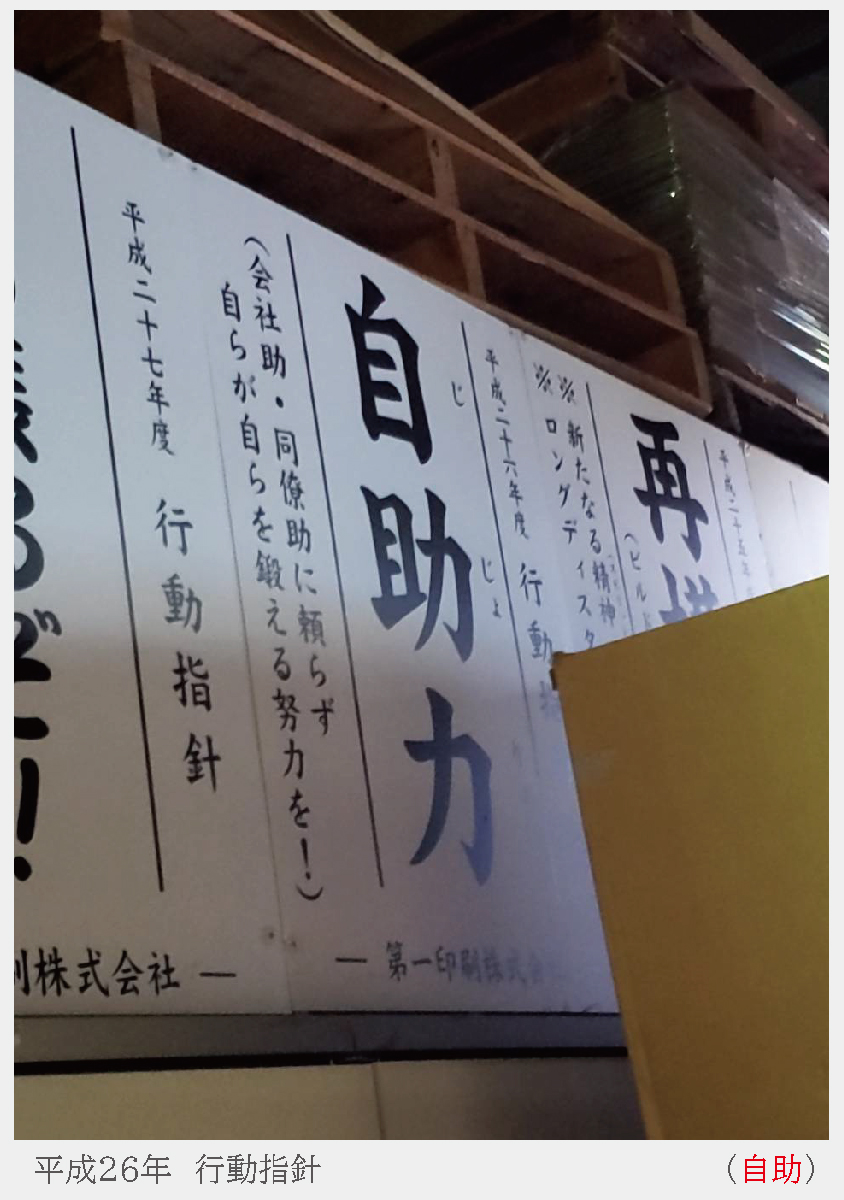 平成二十五年
再
(ビルド
※新たなる精神
※ロングディスタ
平成二十六年度 行動指
じじょ
自助力
(会社助・同僚助に頼らず
自らが自らを鍛える努力を!)
― 第一印刷株式会
平成二十七年度 行動指針
るぞ!
刷株式会社 ―
平成26年 行動指針
(自助)